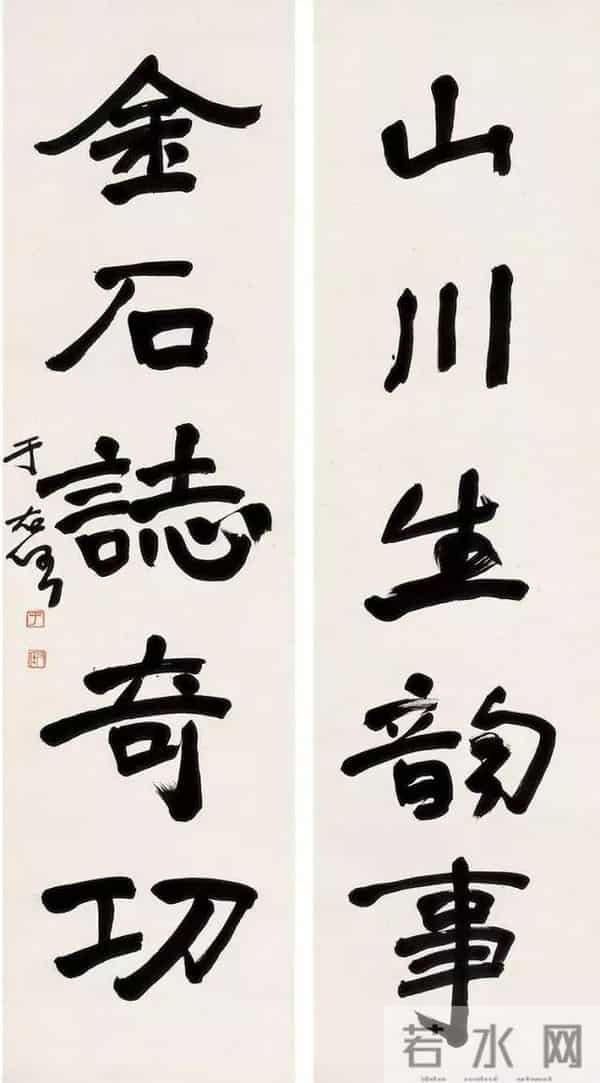 山川生韵事
金石誌奇功
于右任
若水网